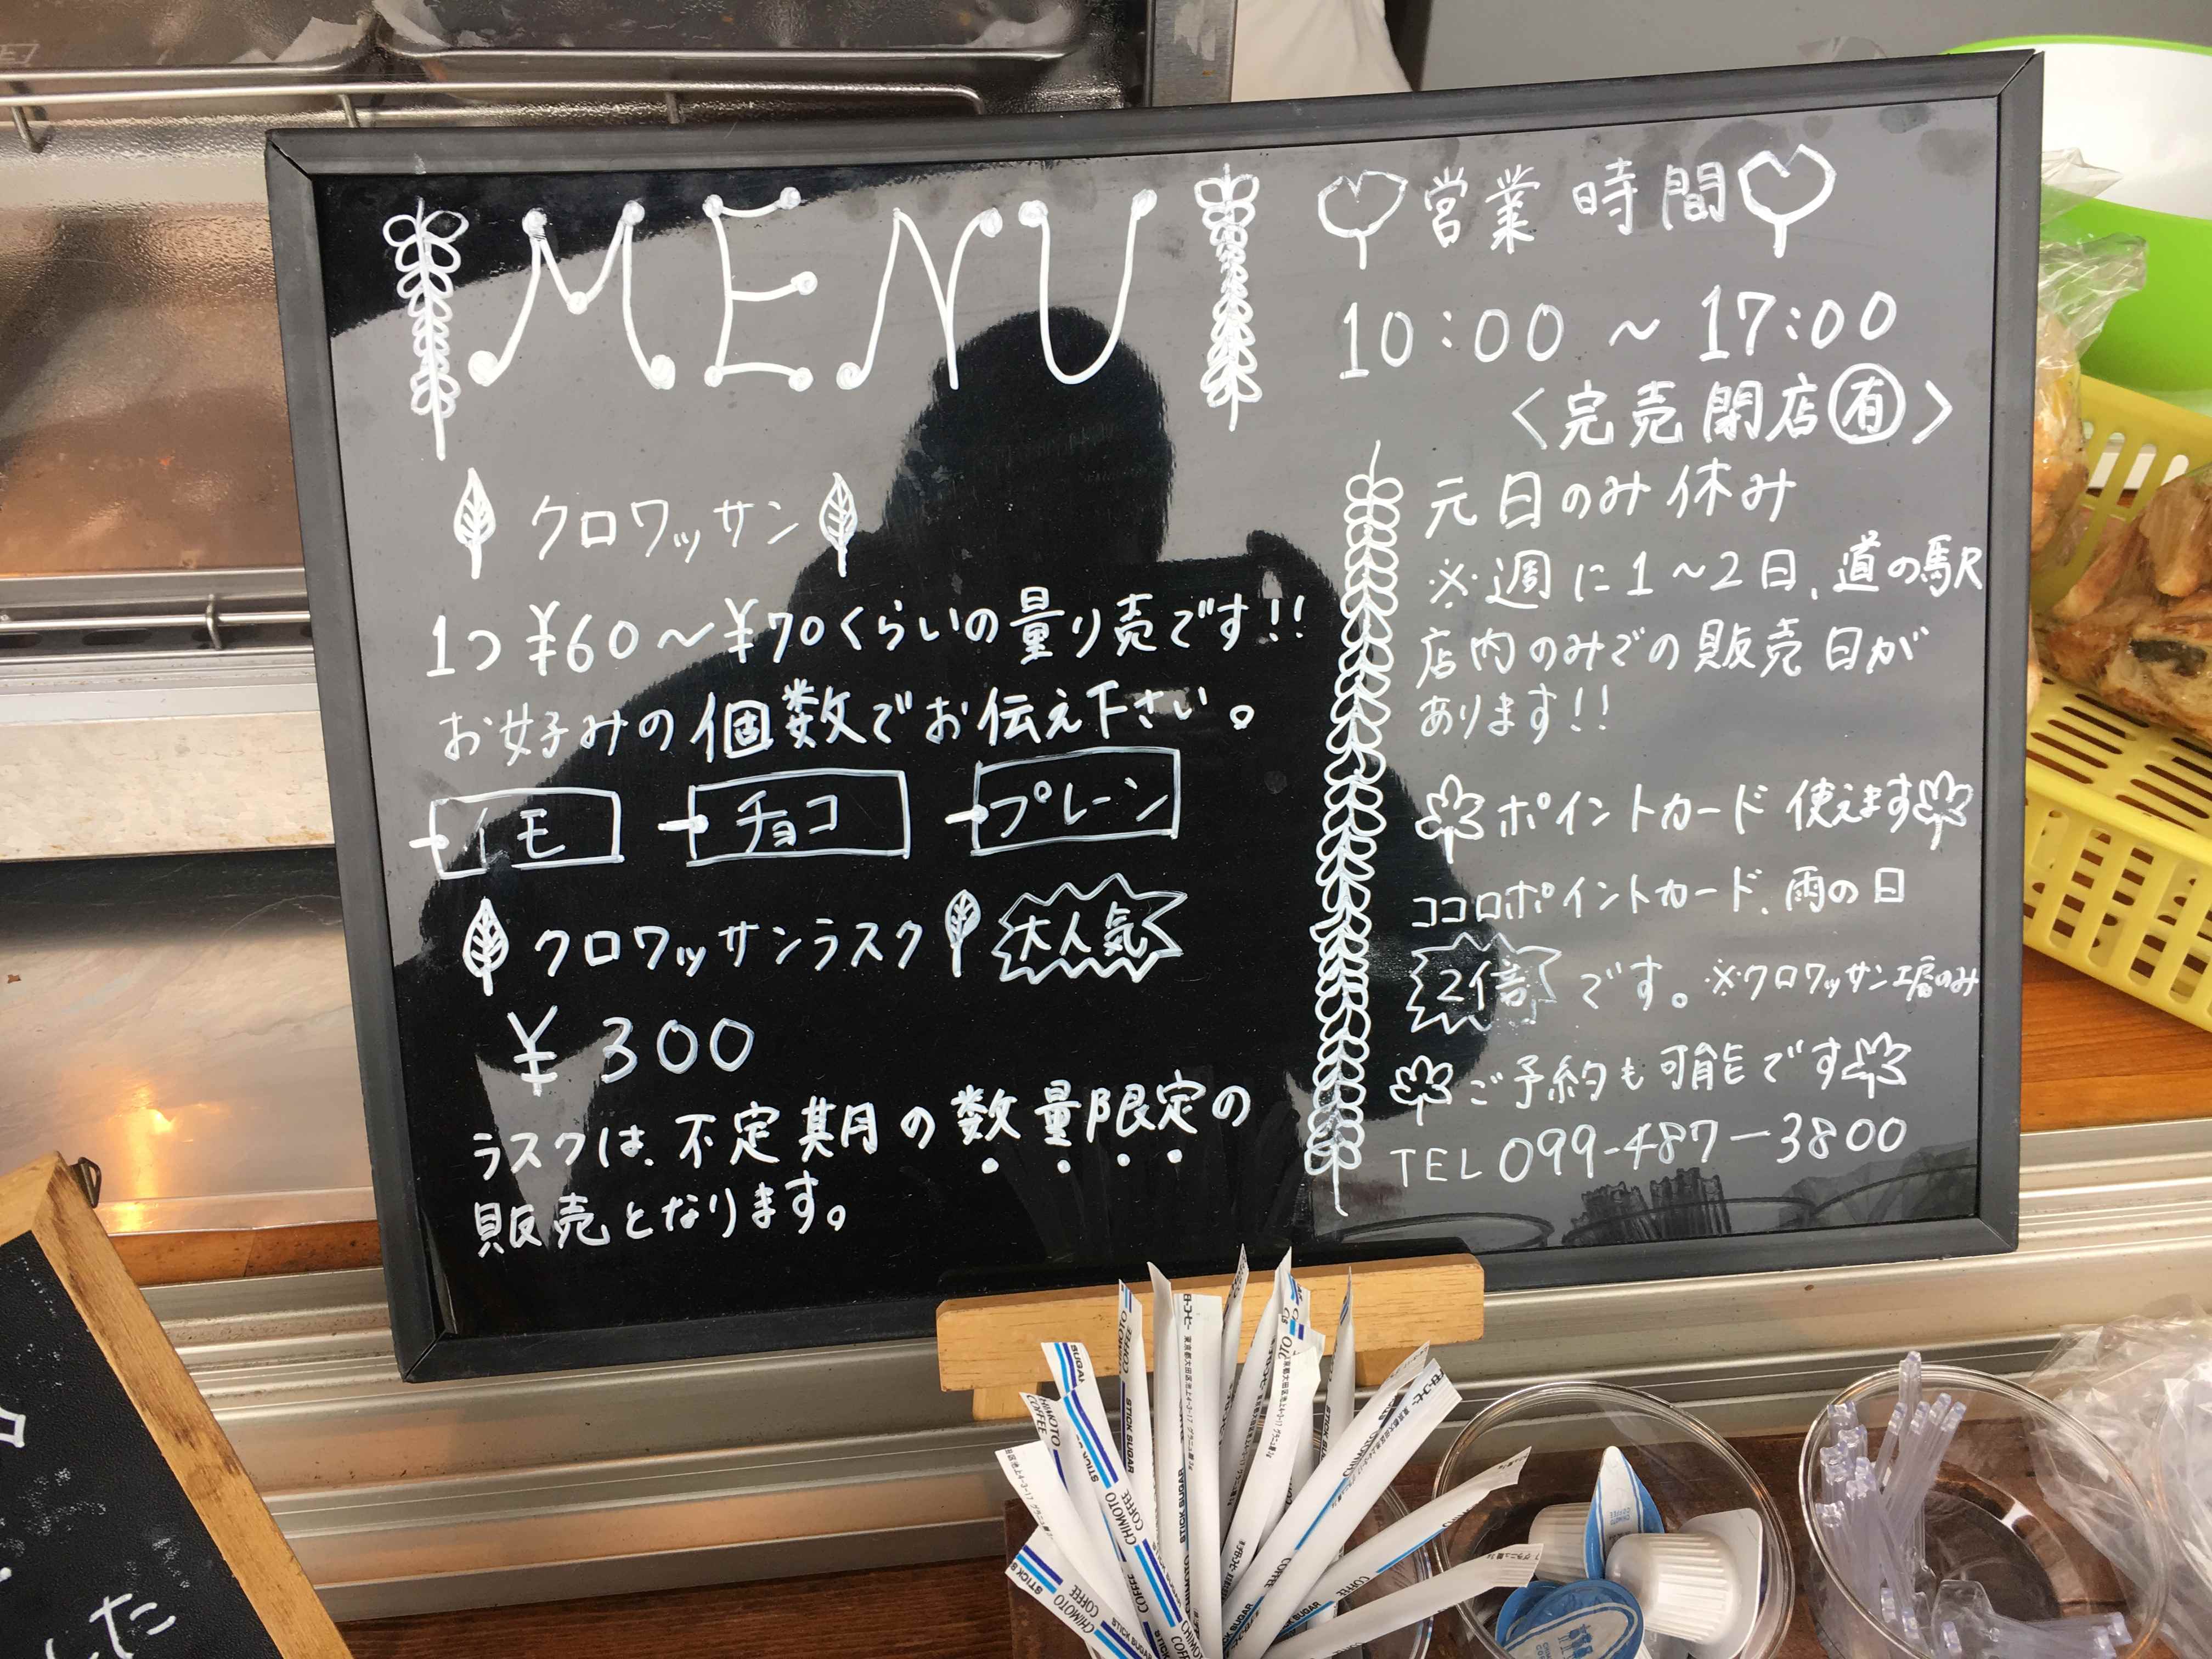 MENU
クロワッサン
1つ ¥60〜¥70くらいの量り売です!!
お好みの個数でお伝え下さい。
イモ チョコ プレーン
クロワッサンラスク 大人気
¥300
ラスクは、不定期の数量限定の
販売となります。
営業時間
10:00 〜 17:00
<完売閉店有>
元日のみ休み
※週に1〜2日、道の駅
店内のみでの販売日が
あります!!
ポイントカード使えます
ココロポイントカード、雨の日
2倍です。※クロワッサン工房のみ
ご予約も可能です
TEL 099-487-3800
した
STICK SUGAR
CHIMOTO COFFEE